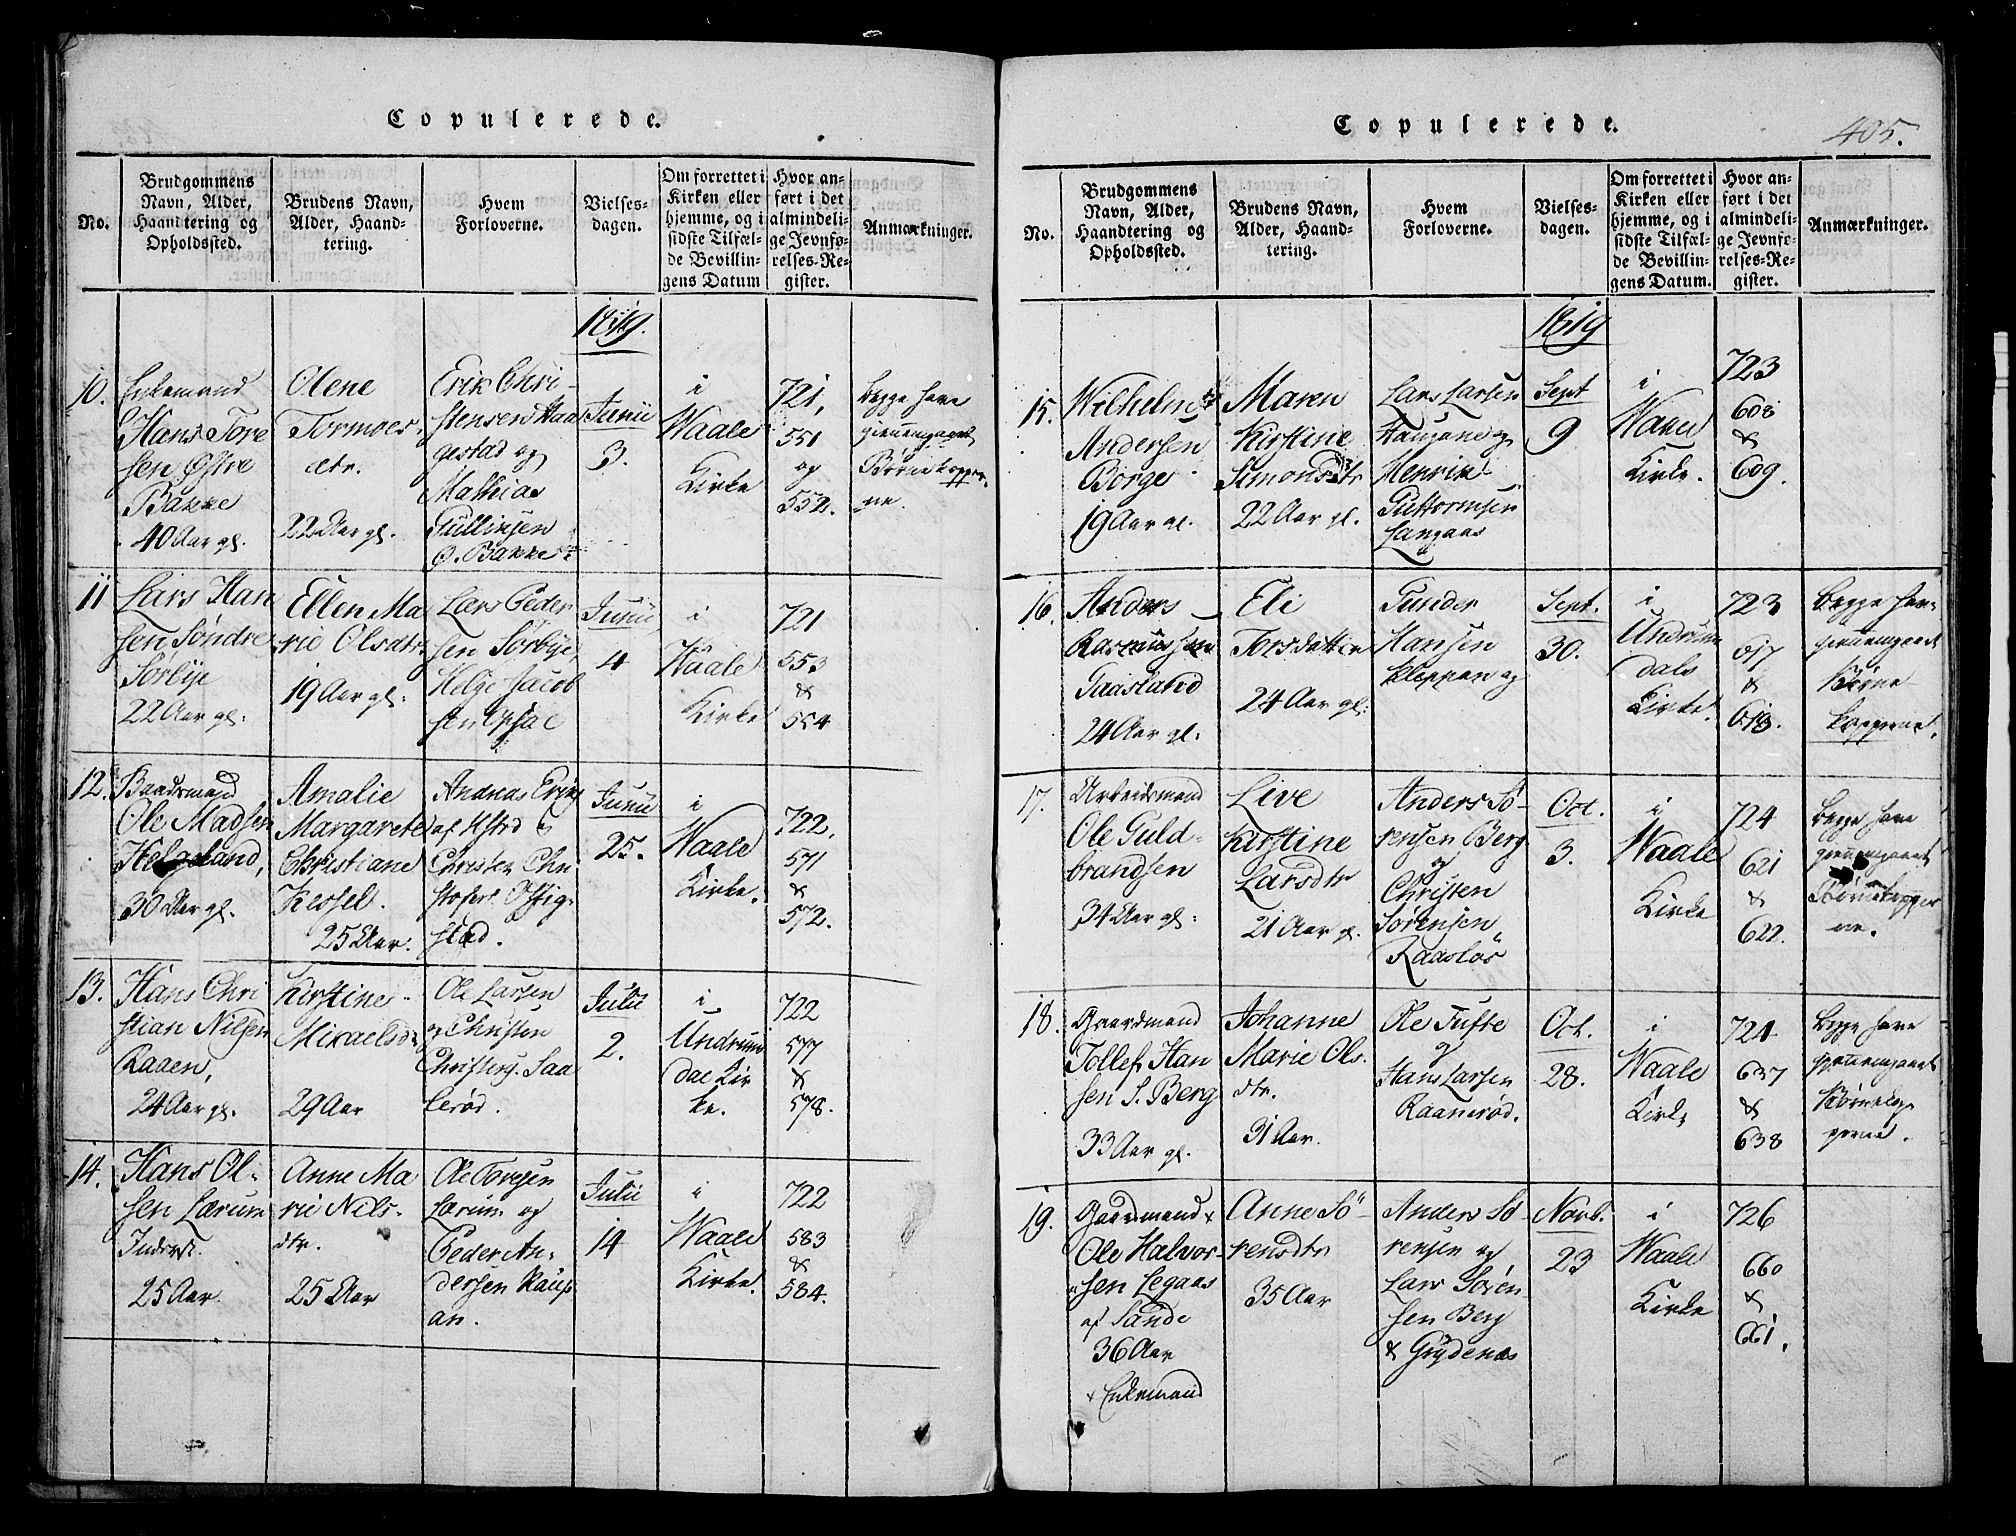 Copulerede.
No.
Brudgommens
Navn, Alder,
Haandtering og
Opholdssted.
Brudens Navn,
Alder, Haand-
tering.
Hvem
Forloverne.
Vielses-
dagen.
Om forrettet i
Kirken eller
hjemme, og i
sidste Tilfæl-
de Bevillin-
gens Datum
Hvor an-
ført i det
almindeli-
ge Jevnfø-
relses-Re-
gister.
Anmærkninger.
1819.
10.
Enkemand
Hans Tore
sen Østre
Bakke
40 Aar gl.
Olene
Tormoes-
dtr.
22 Aar gl.
Erik Chri-
stensen Haa
gestad og
Mathias
Gullixsen
Ø. Bakke
Junii
3.
i
Waale
Kirke
721,
551
og
552.
begge have
giennemgaaet
Børnekopper-
ne.
11
Lars Han
sen Søndre
Sørbye
22 Aar gl.
Ellen Ma
rie Olsdtr.
19 Aar gl.
Lars Peder
sen Sørbye,
Helge Jacob
sen Opsal
Junii
4
i
Waale
Kirke
721
553
&
554
12.
Baadsmand
Ole Madsen
Helgeland,
30 Aar gl.
Amalie
Margarete
Christiane
Kessel.
25 Aar.
Andreas Erics
af
Christen Chri
stofers.
stad.
Junii
25.
i
Waale
Kirke.
722.
571
&
572.
13.
Hans Chri
stian Nilsen
Raaen,
24 Aar gl.
Kirstine
Mikaelsdr
29 Aar
Ole Larsen
og Christen
Christens. Saa
lerød.
Julii
2.
i
Undrum
dal Kir
ke.
722
577
&
578.
14.
Hans Ol-
sen Lærum
Inderst.
25 Aar.
Anne Ma
rie Nils-
dtr.
25 Aar
Ole Toresen
Lærum og
Peder An-
dersen Rausp
an.
Julii
14
i
Waale
Kirke.
722
583
&
584.
Copulerede.
405.
No.
Brudgommens
Navn, Alder,
Haandtering og
Opholdssted.
Brudens Navn,
Alder, Haand-
tering.
Hvem
Forloverne.
Vielses-
dagen.
Om forrettet i
Kirken eller
hjemme, og i
sidste Tilfæl-
de Bevillin-
gens Datum.
Hvor an-
ført i det
almindeli-
ge Jevnfø-
relses-Re-
gister.
Anmærkninger.
1819
15.
Wilhelm
Andersen
Borge
19 Aar gl.
Maren
Kirstine
Simonsdtr
22 Aar gl.
Lars Larsen
Haugane og
Henrik
Guttormsen
Langaas
Sept
9
i
Waale
Kirke.
723
608
&
609.
16.
Anders
Rasmussen
Gaasland
24 Aar gl.
Eli
Torsdatter
24 Aar gl.
Gunder
Hansen
Kleppan og
Sept.
30.
i
Undrum
dals
Kirke.
723
617
&
618.
begge have
giennemgaaet
Børne-
kopperne.
17.
Arbeidsmand
Ole Guld-
brandsen
34 Aar gl.
Live
Kirstine
Larsdtr
21 Aar gl.
Anders Sø-
rensen Berg
og
Christen
Sørensen,
Raasløs
Oct.
3.
i
Waale
Kirke
724
621
&
622.
begge have
giennemgaaet
Børnekopper
ne.
18.
Gaardmand
Tollef Han
sen S. Berg
33 Aar gl.
Johanne
Marie Ols-
dtr.
31 Aar.
Ole Tufte
og
Hans Larsen
Raanerød.
Oct.
28.
i
Waale
Kirke
724
637
&
638
begge have
giennemgaaet
Børnekop
perne.
19.
Gaardmand x
Ole Halvor-
sen Legaas
af Sande
36 Aar
x Enkemand
Anne Sö-
rensdtr
35 Aar
Anders Sö-
rensen og
Lars Sören
sen Berg
& Grydenæs
Novb.
23
i
Waale
Kirke
726
660
&
661.